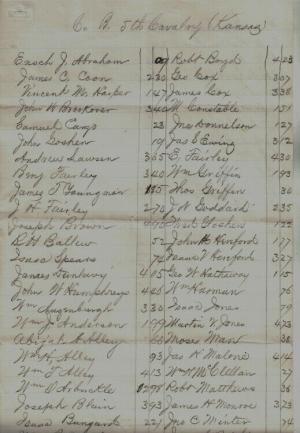 Co. A. 5th Cavalry (Kansas)
Esach J. Abraham Robt Boyd 423
James C. Coon 220 Geo Cox 307
Vincent M. Harper 147 James Cox 338
John H 340 M. Constable 151
Samuel 23 Jno Donnelson 127
John Goshen 19 Jas E Ewing 312
Andrew Lawson 305 E. Fairley 430
Benj Fairley 340 Wm Griffin 193
James T Youngman Thos Griffin 30
J H Fairley 270 J. N. Goddard 235
Joseph Brown Goshen 122
B H Ballew 52 John H Heniford 177
Isaac Spears 72 Heniford 327
James 405 Geo W Hathaway 115
John W Humphreys 420 Wm Harman 76
Wm 330 Isaac Jones 79
Wm J. Anderson 199 Martin V. Jones 473
Abijah A Alley 60 Moses Maw 38
Wm H Alley 93 Jas H Malone 414
Wm T Alley 413 Wm McClellan 27
Wm D Arbuckle Robt Matthews 36
Joseph Blain 393 James H Monroe 373
Isaac Bungard 227 Jno C Minter 74